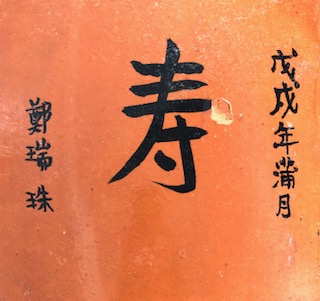 戊戌年蒲月
寿
鄭瑞珠